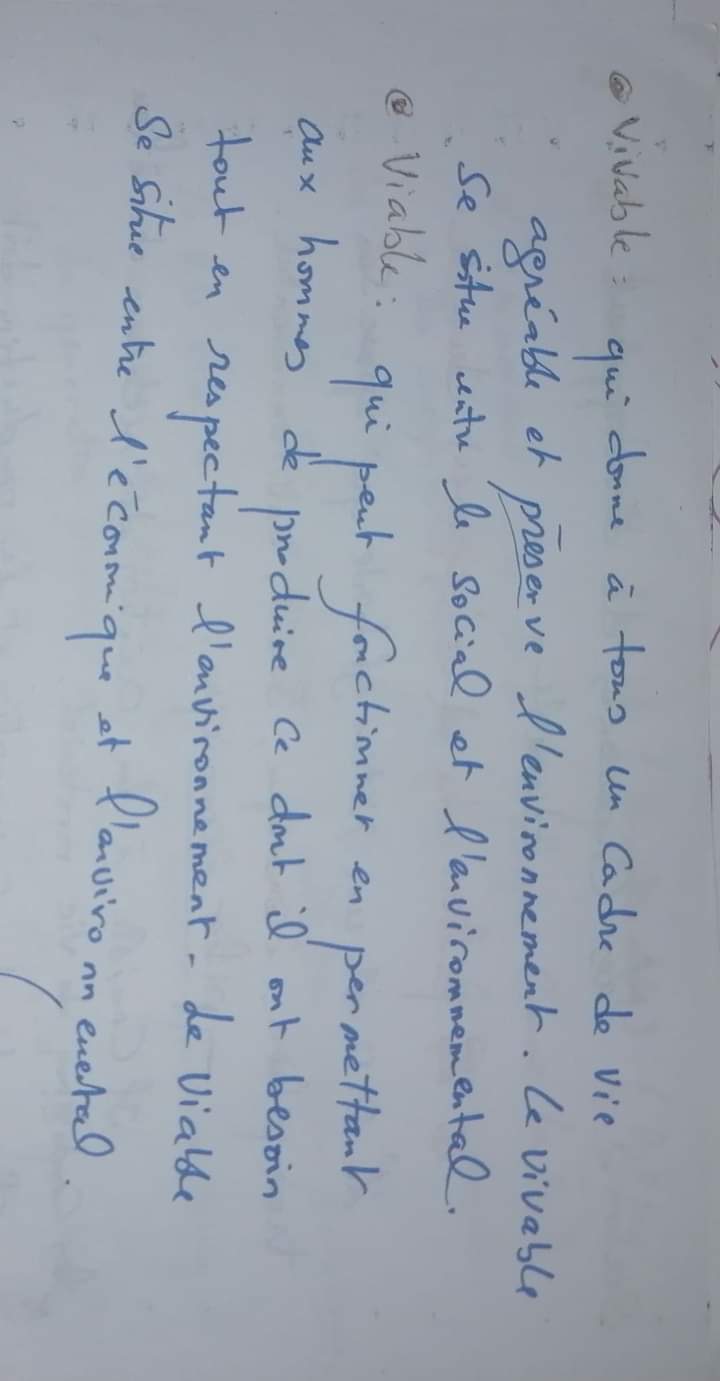 Vivable : qui donne à tous un cadre de vie
agréable et préserve l'environnement. Le vivable
se situe entre le social et l'environnemental.
Viable : qui peut fonctionner en permettant
aux hommes de produire ce dont il ont besoin
tout en respectant l'environnement. Le viable
se situe entre l'économique et l'environnemental.